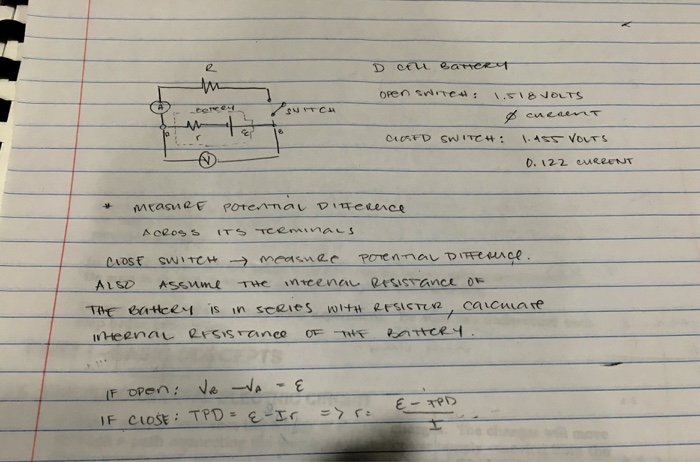 R
D CELL BATTERY
OPEN SWITCH: 1.518 VOLTS
Ø CURRENT
A
BATTERY
SWITCH
r
ε
B
CLOSED SWITCH: 1.455 VOLTS
V
0.122 CURRENT
* MEASURE POTENTIAL DIFFERENCE
ACROSS ITS TERMINALS
CLOSE SWITCH → MEASURE POTENTIAL DIFFERENCE.
ALSO ASSUME THE INTERNAL RESISTANCE OF
THE BATTERY IS IN SERIES WITH RESISTOR, CALCULATE
INTERNAL RESISTANCE OF THE BATTERY.
IF OPEN: VB - VA = ε
IF CLOSE: TPD = ε - Ir => r = ε - TPD / I